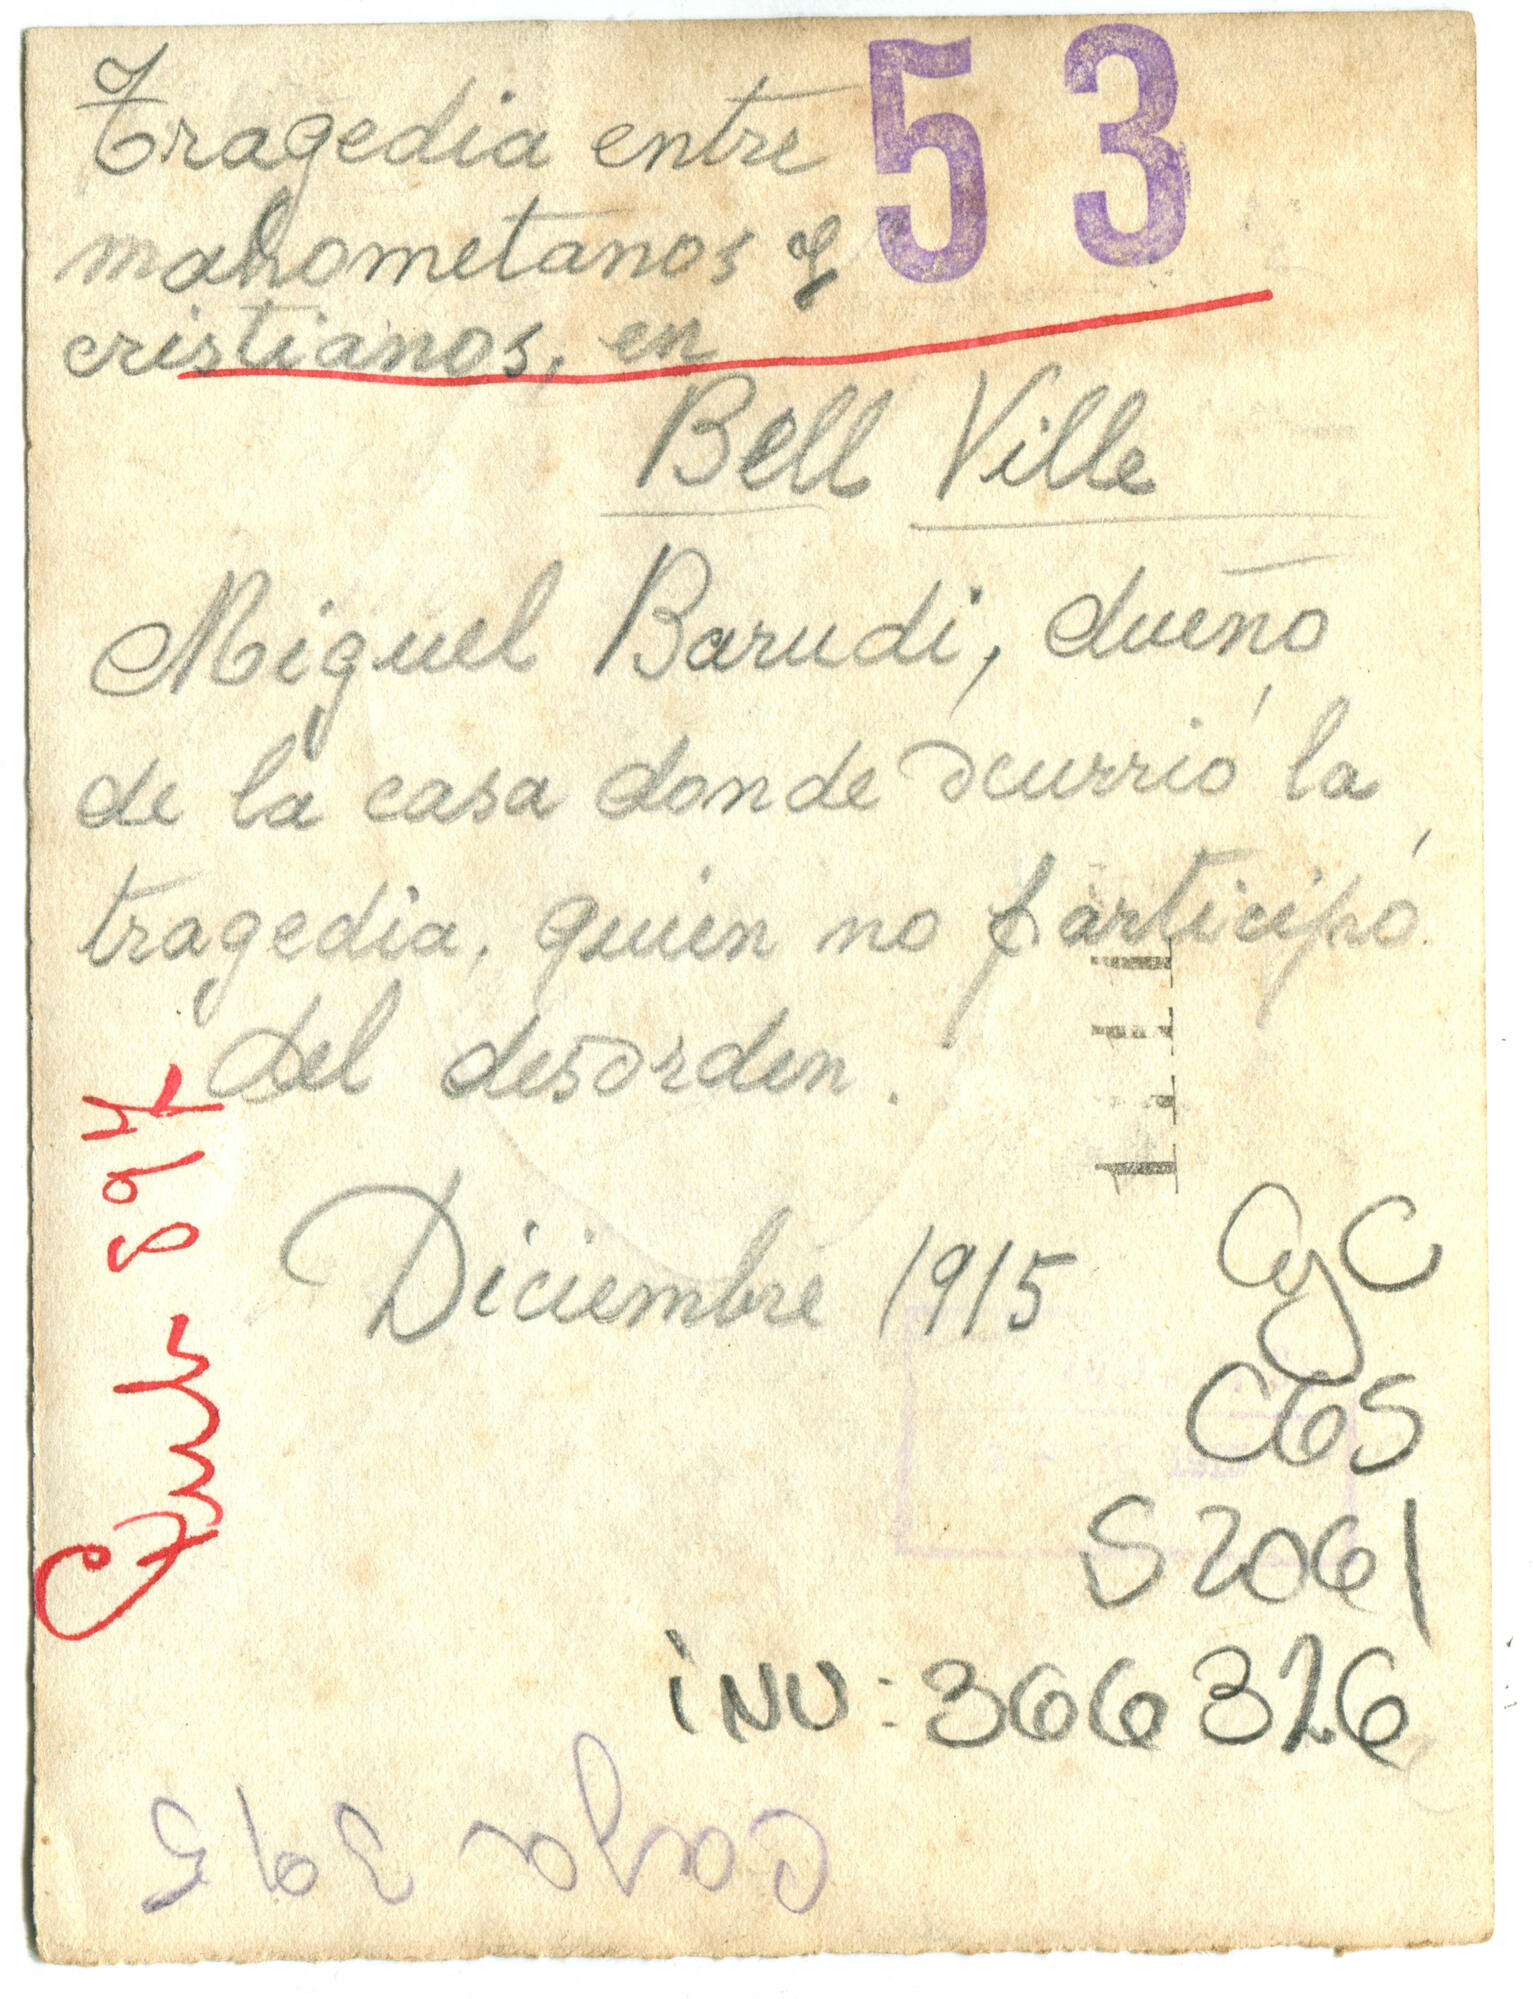 Tragedia entre
53
mahometanos y
cristianos, en
Bell Ville
Miguel Barudi, dueño
de la casa donde ocurrió la
tragedia, quien no participó
del desorden.
Diciembre 1915
CyC
C6S
S2061
iNV: 366326
897
Caja 395